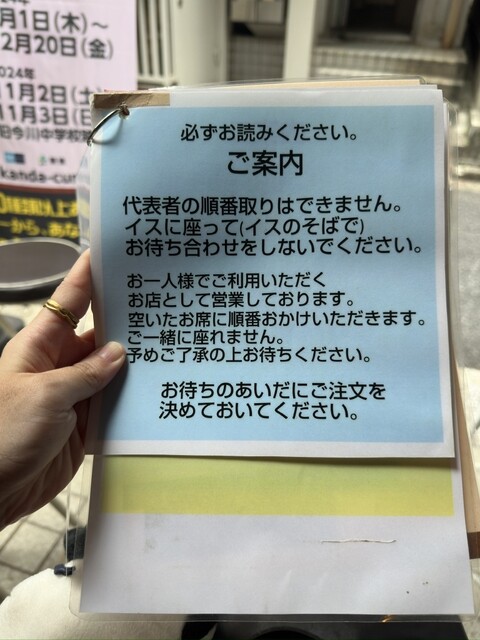 1日(木)～
2月20日(金)
2024年
1月2日(土
1月3日(日
今川中学校
kanda-cu
必ずお読みください。
ご案内
代表者の順番取りはできません。
イスに座って(イスのそばで)
お待ち合わせをしないでください。
お一人様でご利用いただく
お店として営業しております。
空いたお席に順番おかけいただきます。
ご一緒に座れません。
予めご了承の上お待ちください。
お待ちのあいだにご注文を
決めておいてください。